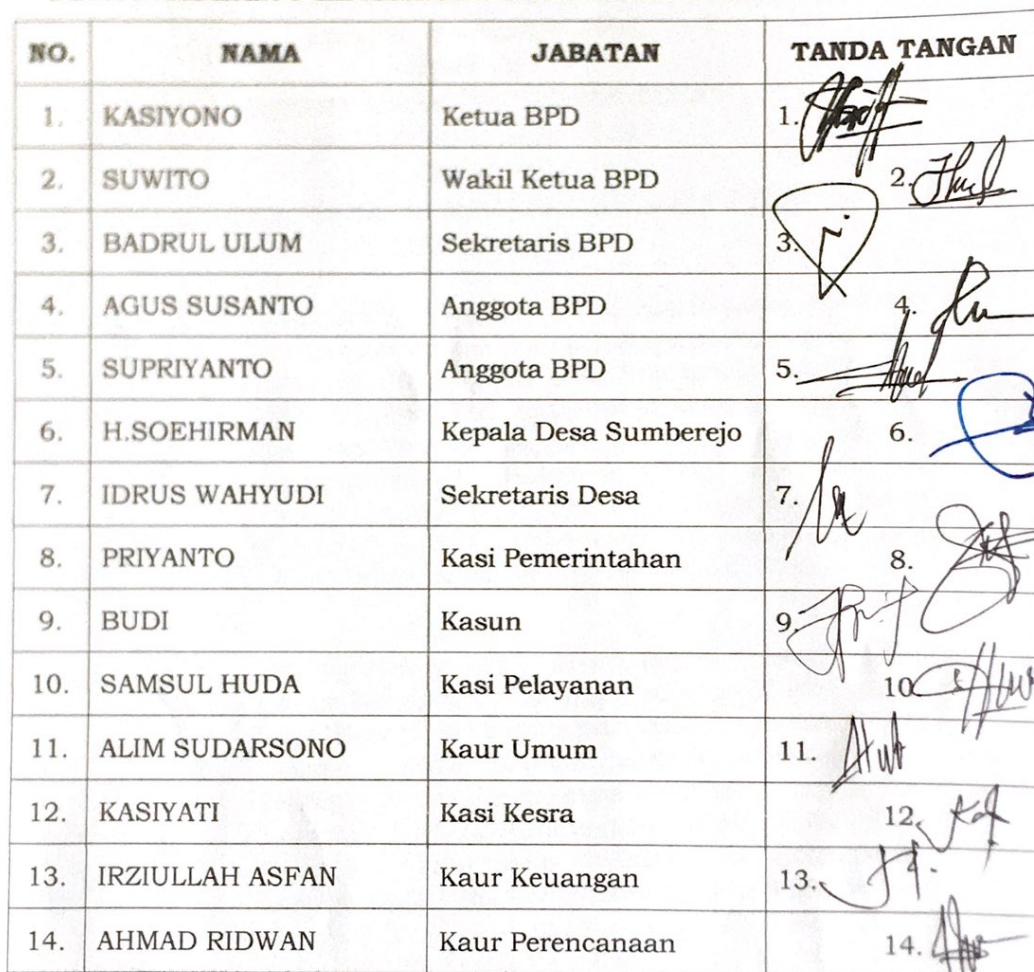 NO. NAMA JABATAN TANDA TANGAN
1. KASIYONO Ketua BPD 1.
2. SUWITO Wakil Ketua BPD 2.
3. BADRUL ULUM Sekretaris BPD 3.
4. AGUS SUSANTO Anggota BPD 4.
5. SUPRIYANTO Anggota BPD 5.
6. H.SOEHIRMAN Kepala Desa Sumberejo 6.
7. IDRUS WAHYUDI Sekretaris Desa 7.
8. PRIYANTO Kasi Pemerintahan 8.
9. BUDI Kasun 9.
10. SAMSUL HUDA Kasi Pelayanan 10
11. ALIM SUDARSONO Kaur Umum 11.
12. KASIYATI Kasi Kesra 12.
13. IRZIULLAH ASFAN Kaur Keuangan 13.
14. AHMAD RIDWAN Kaur Perencanaan 14.